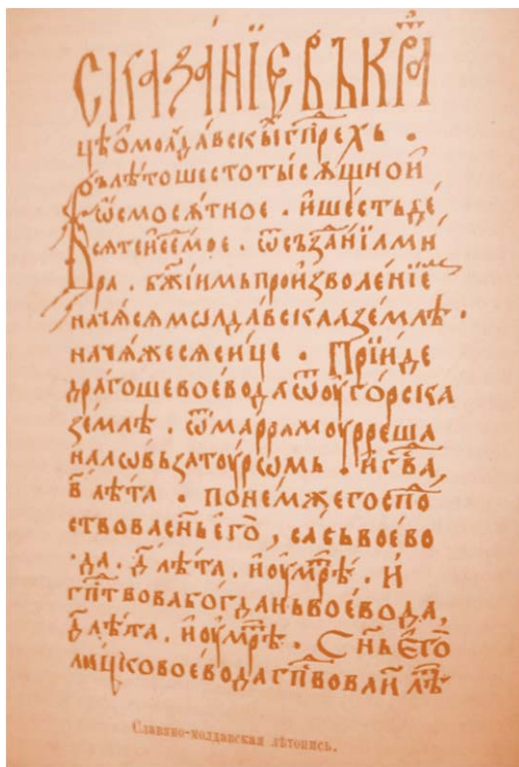 СКАЗА́НЇЕ ВЪКРА
ЦѢ Ѡ МОЛДА́ВСКЫ ГПРЕХЬ .
въ лѣто шестоты́сѧщной
ѿсмосѧ́тное . и҆ шестьде́
сѧтей се́мое . ѿ създа́нїѧ ми́
ра . бж҃їимь произволе́нїе
нача́сѧ мѡлда́вскаа землѣ̀ .
нача́ же сѧ си́це . Прїи́де
драгошь воево́да ѿ оу҆го́рска
землѣ̀ . ѿ
на ловь за тоу́ромь . и҆ гпⷭ҇вова,
в҃ лѣ́та . по не́мже госпо
ствова сн҃ь е҆го̀, сась воево́
да, д҃ лѣ́та, и҆ оу҆мрѣ̀ . И
гпⷭ҇твова богда́нь воево́да,
д҃ лѣ́та, и҆ оу҆мрѣ̀ . Сн҃ь е҆го̀
лацко воево́да гпⷭ҇вова й҃ лѣⷮ
Славяно-молдавская лѣтопись.